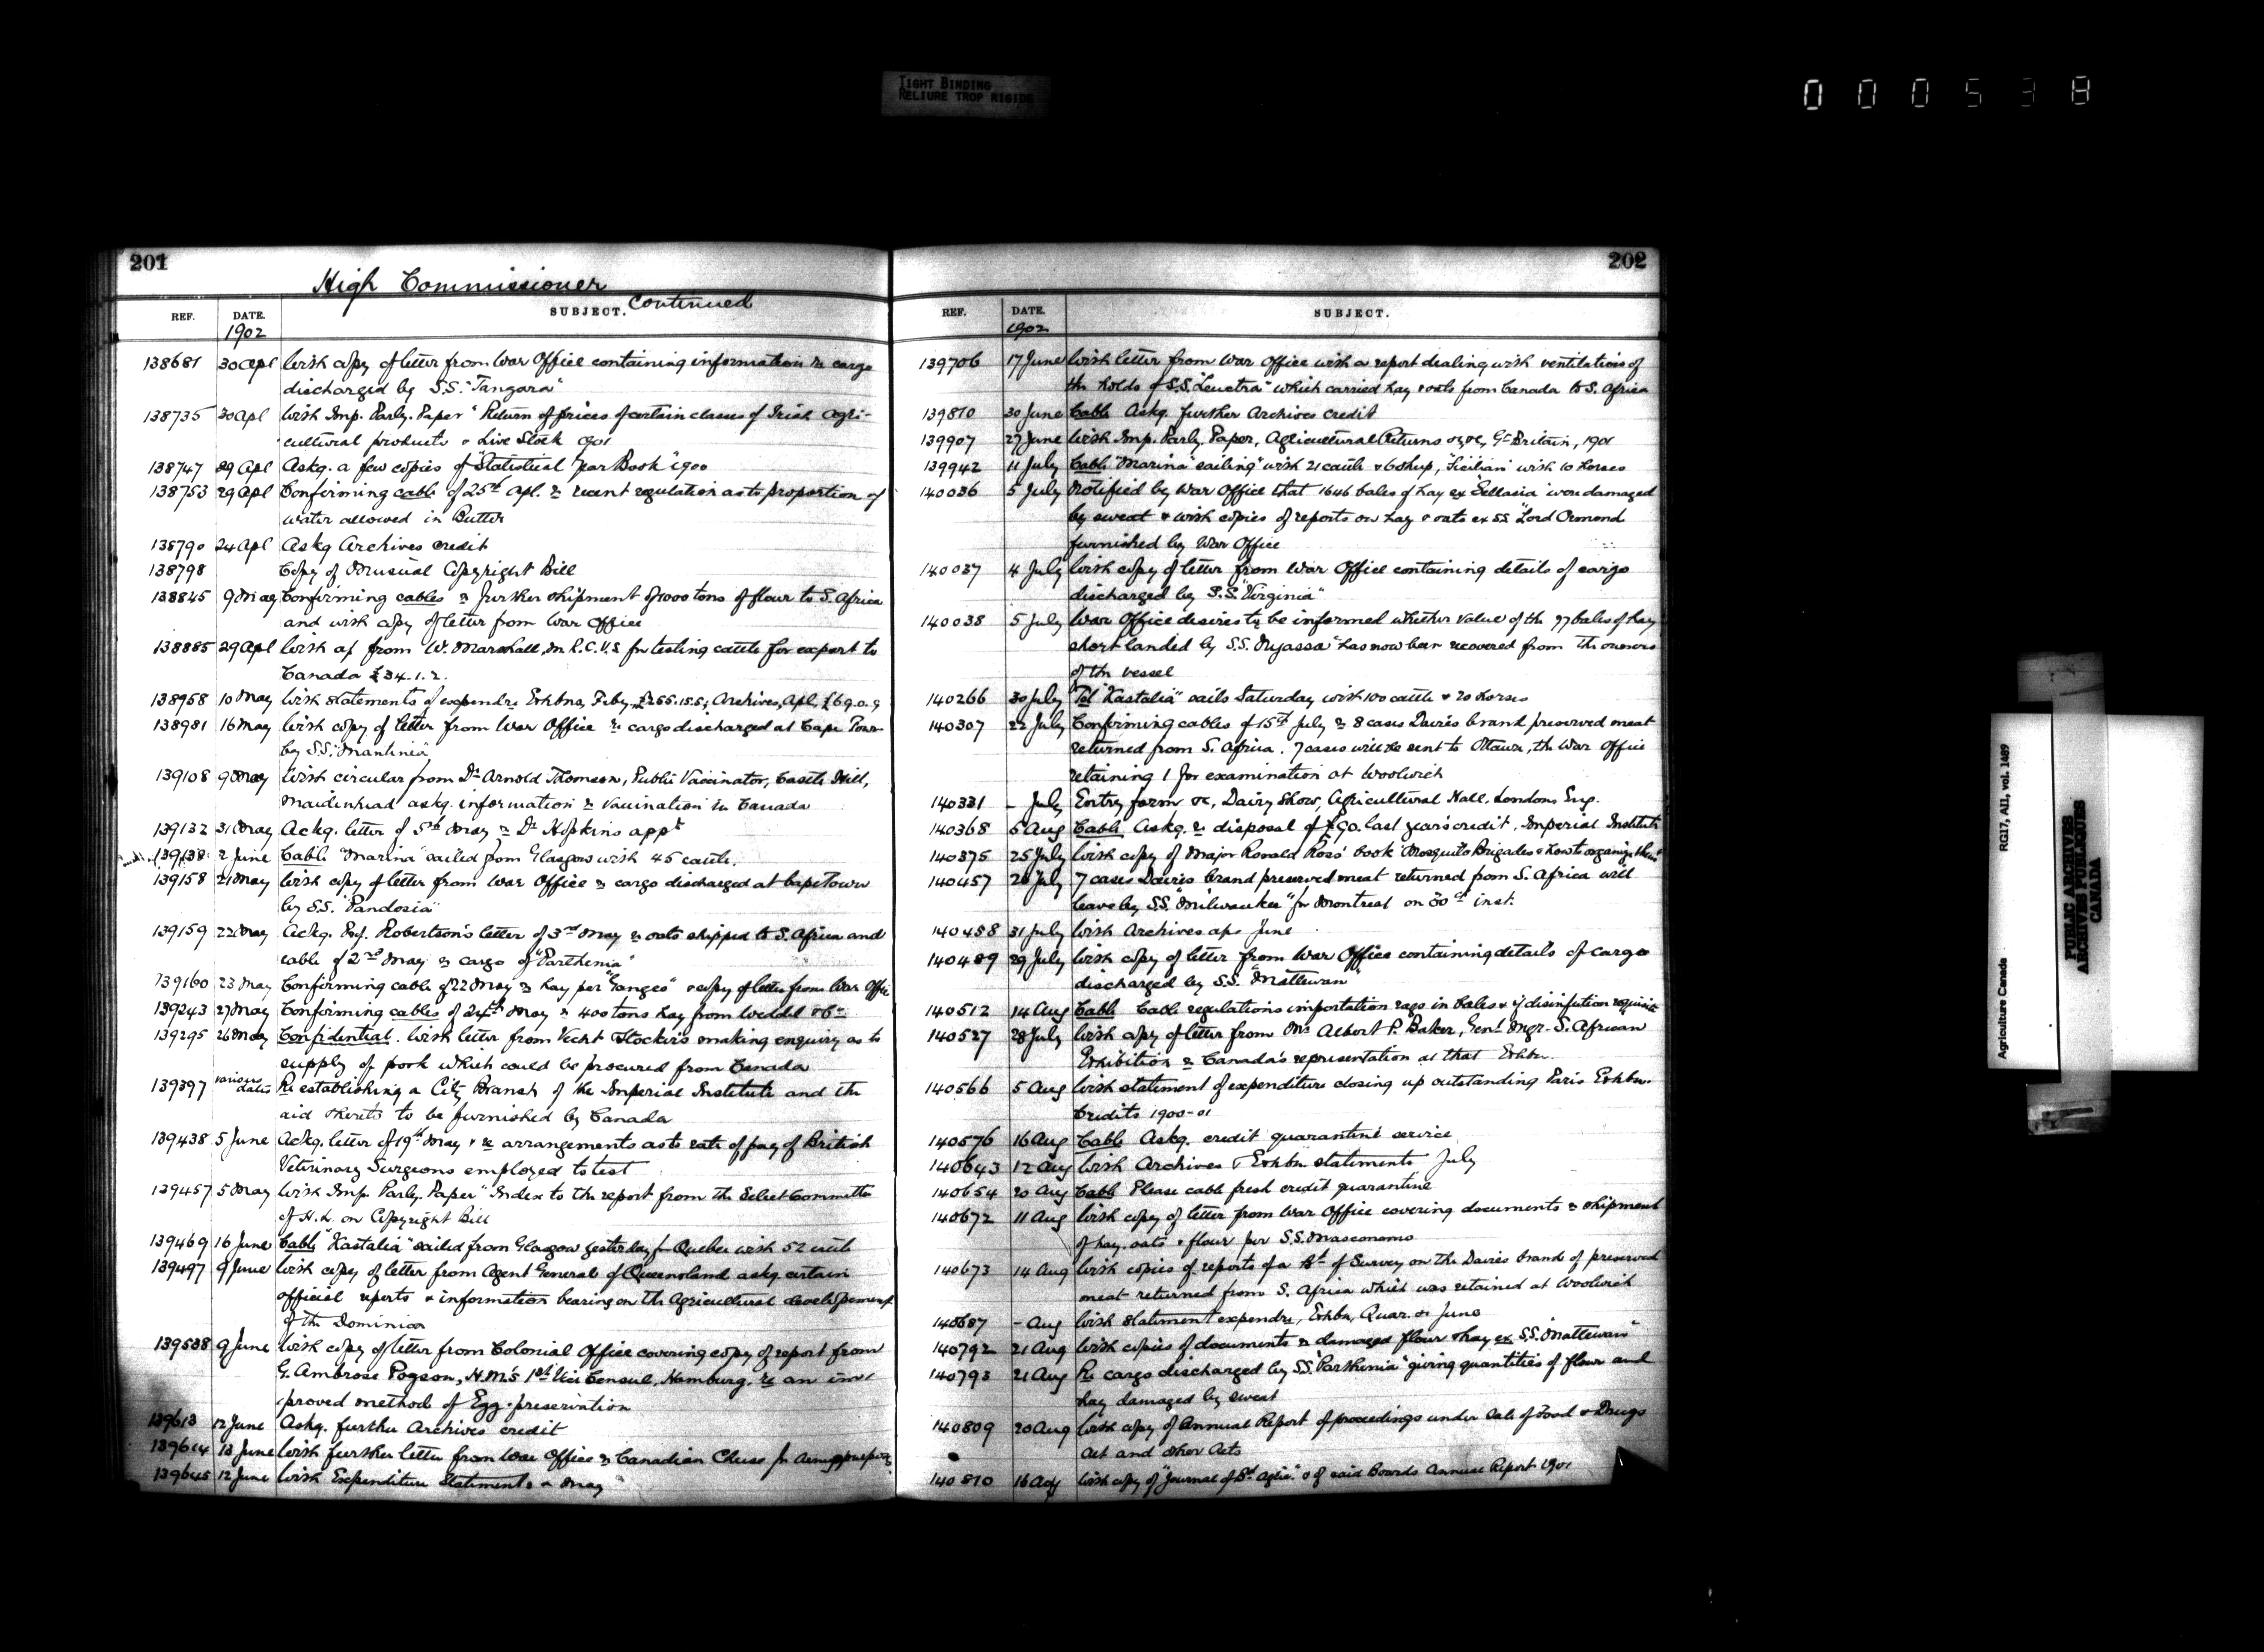 TIGHT BINDING
RELIURE TROP RIGIDE
000538
201
High Commissioner
Continued
REF. DATE. SUBJECT.
1902
138681 30 Apl With copy of letter from War Office containing information re cargo
discharged by S.S. "Tangara"
138735 30 Apl With Imp. Parly. Paper "Return of prices of certain classes of Irish Agri-
cultural products & Live Stock 1901
138747 29 Apl Askg. a few copies of "Statistical Year Book" 1900
138753 29 Apl Confirming cable of 25th Apl. re recent regulation as to proportion of
water allowed in Butter
138790 24 Apl Askg Archives credit
138798 Copy of Musical Copyright Bill
138845 9 May Confirming cables re further shipment of 1000 tons of flour to S. Africa
and with copy of letter from War Office
138885 29 Apl With a/c from W. Marshall, M.R.C.V.S. for testing cattle for export to
Canada £34.1.2.
138958 10 May With statements of expendre Exhbns, Feby, £255.15.5; Archives, Apl, £69.0.9
138981 16 May With copy of letter from War Office re cargo discharged at Cape Town
by S.S. "Mantinea"
139108 9 May With circular from Dr. Arnold Thomson, Public Vaccinator, Castle Hill,
Maidenhead askg. information re Vaccination in Canada
139132 31 May Ackg. letter of 5th May re Dr Hopkins appt
139138 2 June Cable "Marina" sailed from Glasgow with 45 cattle.
139158 21 May With copy of letter from War Office re cargo discharged at Cape Town
by S.S. "Pandosia"
139159 22 May Ackg. Prof. Robertson's letter of 3rd May re oats shipped to S. Africa and
cable of 2nd May re cargo of "Parthenia"
139160 23 May Confirming cable of 22 May re hay per "Ganges" & copy of letter from War Office
139243 27 May Confirming cables of 24th May re 400 tons hay from Weddel & Co
139295 26 May Confidential. With letter from Yacht making enquiry as to
supply of pork which could be procured from Canada
139397 various dates Re establishing a City Branch of the Imperial Institute and the
aid thereto to be furnished by Canada
139438 5 June Ackg. letter of 19th May & re arrangements as to rate of pay of British
Veterinary Surgeons employed to test
139457 5 May With Imp. Parly. Paper "Index to the report from the Select Committee
of H.L. on Copyright Bill
139469 16 June Cable "Kastalia" sailed from Glasgow yesterday for Quebec with 52 cattle
139497 9 June With copy of letter from Agent General of Queensland askg certain
official reports & information bearing on the Agricultural development
of the Dominion
139538 9 June With copy of letter from Colonial Office covering copy of report from
G. Ambrose Pogson, H.M's 1st Vice Consul, Hamburg, re an im-
proved method of Egg-preservation
139613 12 June Askg. further Archives credit
139614 13 June With further letter from War Office re Canadian Cheese for Army purposes
139645 12 June With Expenditure Statements & May
202
REF. DATE. SUBJECT.
1902
139706 17 June With letter from War Office with a report dealing with ventilation of
the holds of S.S. "Leuctra" which carried hay & oats from Canada to S. Africa
139810 30 June Cable Askg. further Archives credit
139907 27 June With Imp. Parly. Paper, Agricultural Returns &c, Gt Britain, 1901
139942 11 July Cable "Marina" sailing with 21 cattle & 6 sheep, "Sicilian" with 10 horses
140036 5 July Notified by War Office that 1646 bales of hay ex "Sellasia" were damaged
by sweat & with copies of reports on hay & oats ex SS "Lord Ormond
furnished by War Office
140037 4 July With copy of letter from War Office containing details of cargo
discharged by S.S. "Virginia"
140038 5 July War Office desires to be informed whether value of the 97 bales of hay
short landed by S.S. "Nyassa" has now been recovered from the owners
of the vessel
140266 30 July Tel "Kastalia" sails Saturday with 100 cattle & 20 horses
140307 22 July Confirming cables of 15th July re 8 cases Davies brand preserved meat
returned from S. Africa. 7 cases will be sent to Ottawa, the War Office
retaining 1 for examination at Woolwich
140331 - July Entry form &c, Dairy Show, Agricultural Hall, London, Eng.
140368 5 Aug Cable Askg. re disposal of £90. last years credit, Imperial Institute
140375 25 July With copy of Major Ronald Ross' book "Mosquito Brigades & how to organize them"
140457 26 July 7 cases Davies brand preserved meat returned from S. Africa will
leave by S.S. "Milwaukee" for Montreal on 30th inst.
140458 31 July With Archives a/c June
140489 29 July With copy of letter from War Office containing details of cargo
discharged by S.S. "Mattewan"
140512 14 Aug Cable Cable regulations importation rags in bales & if disinfection requisite
140527 28 July With copy of letter from Mr Albert P. Baker, Genl Mgr. S. African
Exhibition re Canada's representation at that Exhbn.
140566 5 Aug With statement of expenditure closing up outstanding Paris Exhbn.
Credits 1900-01
140576 16 Aug Cable Askg. credit quarantine service
140643 12 Aug With Archives & Exhbn statements July
140654 20 Aug Cable Please cable fresh credit quarantine
140672 11 Aug With copy of letter from War Office covering documents re shipment
of hay, oats & flour per S.S. Masconomo
140673 14 Aug With copies of reports of a Bd of Survey on the Davies brand of preserved
meat returned from S. Africa which was retained at Woolwich
140687 - Aug With statement expendre, Exhbn, Quar. &c June
140792 21 Aug With copies of documents re damaged flour & hay ex S.S. "Mattewan"
140793 21 Aug Re cargo discharged by S.S. "Parthenia" giving quantities of flour and
hay damaged by sweat
140809 20 Aug With copy of Annual Report of proceedings under Sale of Food & Drugs
Act and other Acts
140810 16 Aug With copy of "Journal of Bd. Agric." & of said Boards Annual Report 1901
Agriculture Canada RG17, AII, vol. 1489
PUBLIC ARCHIVES
ARCHIVES PUBLIQUES
CANADA